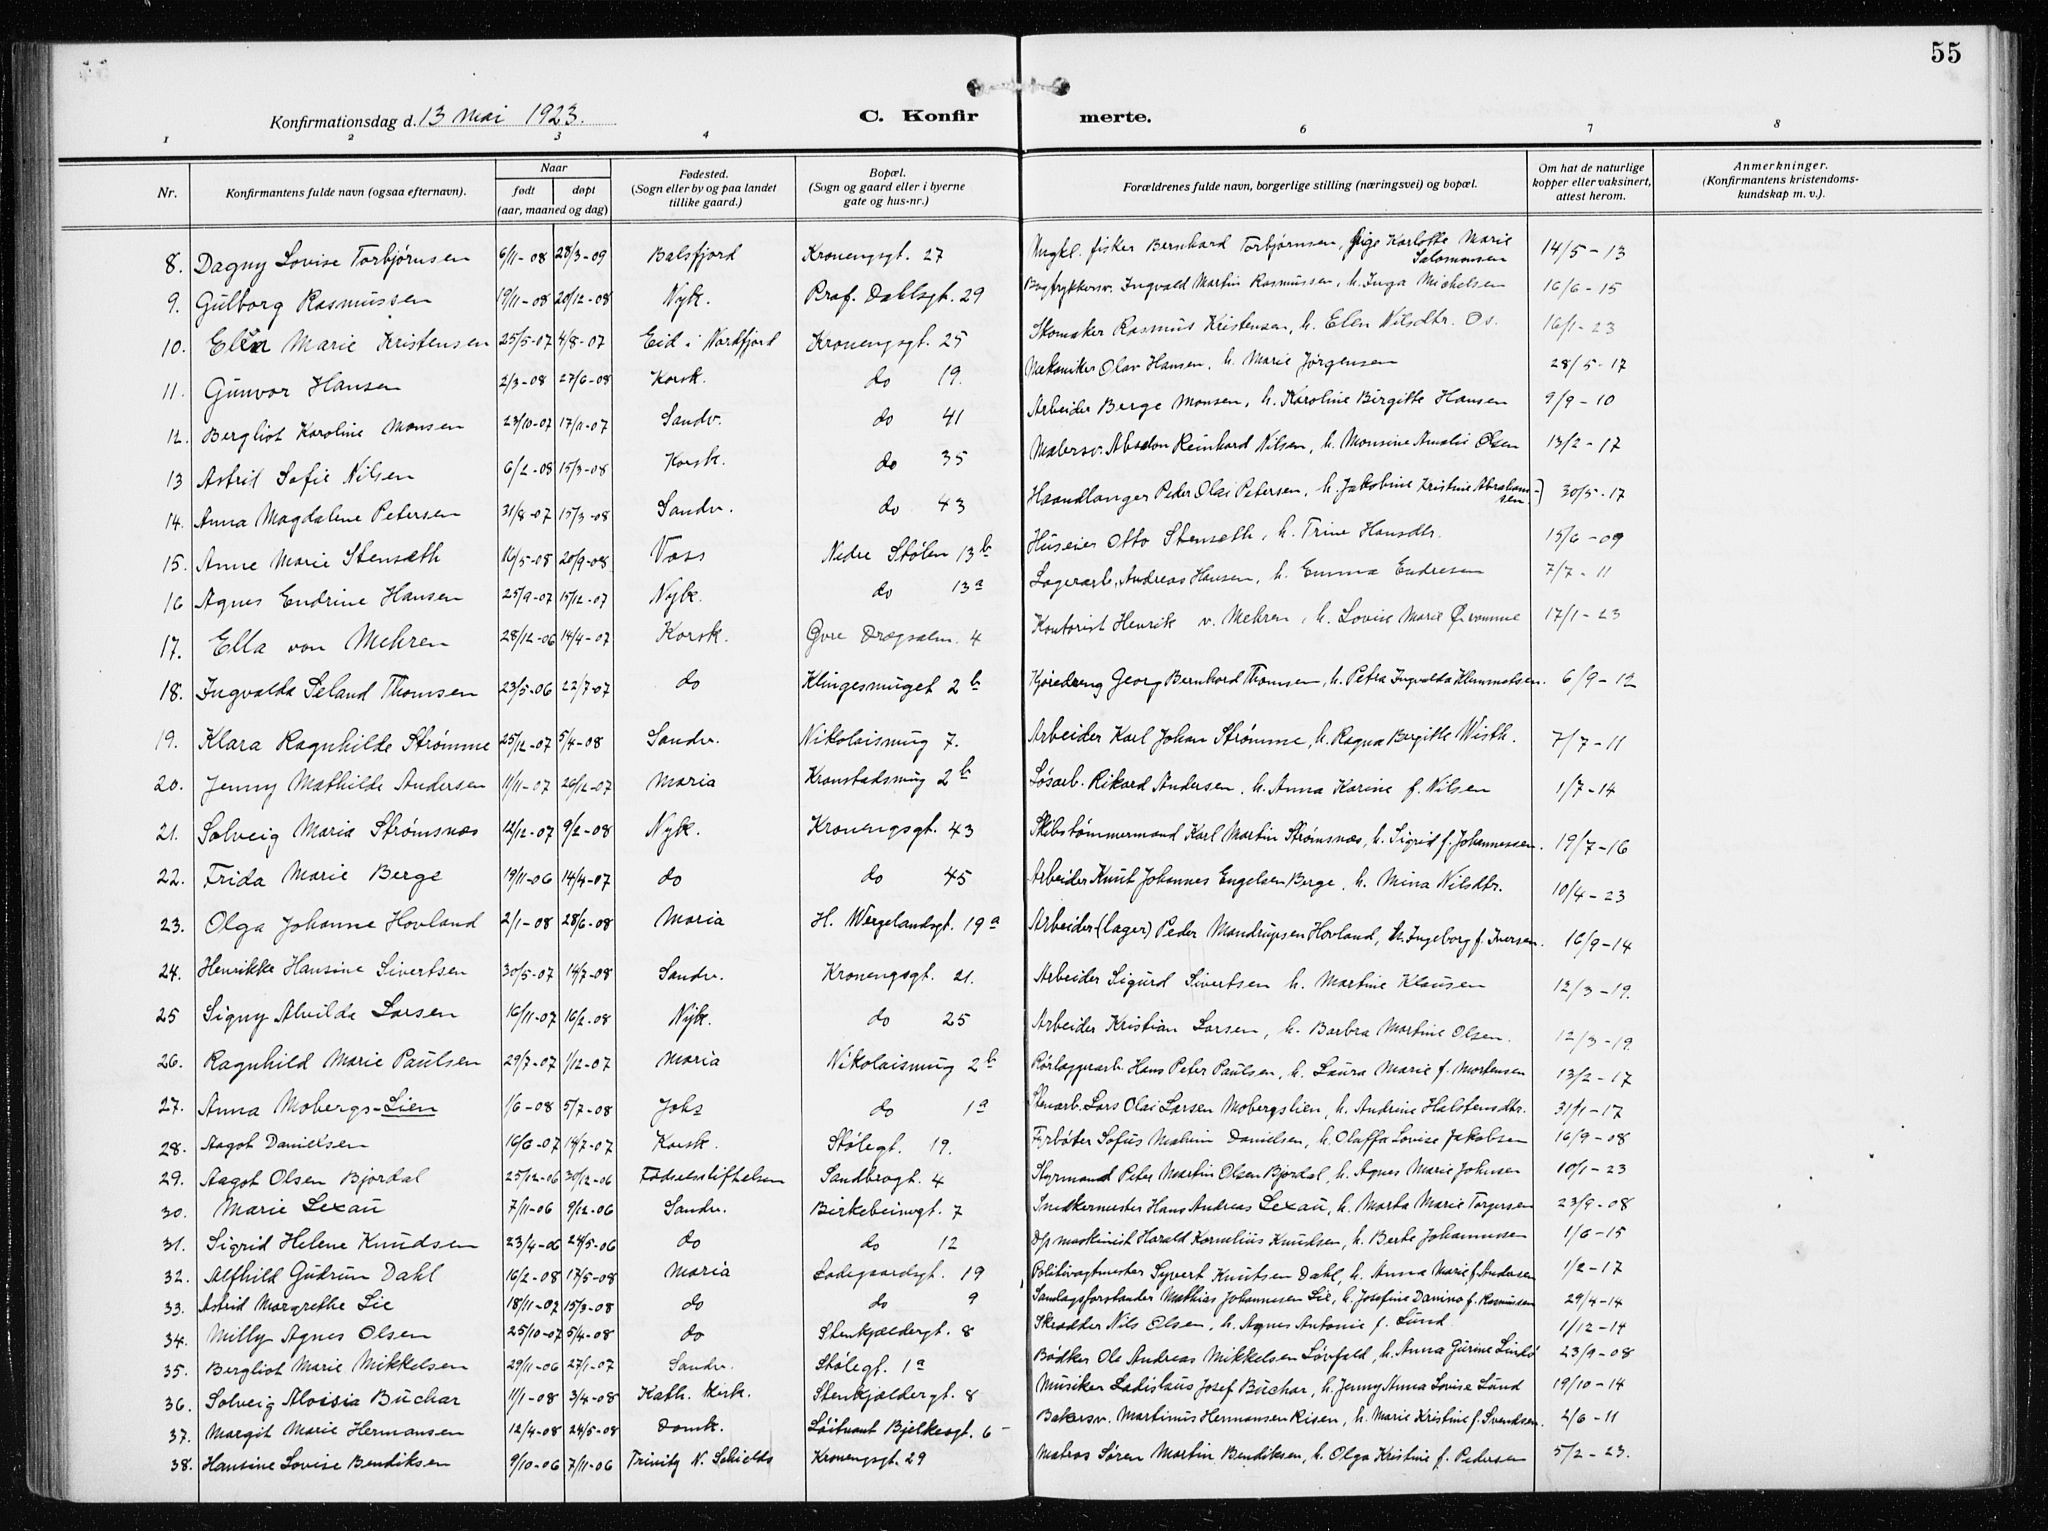 55
Konfirmationsdag d. 13 mai 1923.
C. Konfirmerte.
1 2 3 4 6 7 8
Nr. Konfirmantens fulde navn (ogsaa efternavn). Naar født døpt (aar, maaned og dag) Fødested. (Sogn eller by og paa landet tillike gaard.) Bopæl. (Sogn og gaard eller i byerne gate og hus-nr.) Forældrenes fulde navn, borgerlige stilling (næringsvei) og bopæl. Om hat de naturlige kopper eller vaksinert, attest herom. Anmerkninger. (Konfirmantens kristendoms-kundskap m. v.).
8. Dagny Lovise Torbjørnsen 6/11-08 28/3-09 Balsfjord Kronengsgt. 27 Ungkl. fisker Bernhard Torbjørnsen, pige Karlotte Marie Salomonsen 14/5-13
9. Gulborg Rasmussen 19/11-08 20/12-08 Nyk. Prof. Dahlsgt. 29 Bogtrykkersv. Ingvald Martin Rasmussen, h. Inga Michelsen 16/6-15
10. Elen Marie Kristensen 25/5-07 4/8-07 Eid i Nordfjord Kronengsgt. 25 Skomaker Rasmus Kristensen, h. Elen Nilsdtr. Os. 16/1-23
11. Gunvor Hansen 2/3-08 27/6-08 Korsk. do 19. Mekaniker Olav Hansen, h. Marie Jørgensen 28/5-17
12. Bergliot Karoline Monsen 23/10-07 17/11-07 Sandv. do 41 Arbeider Berge Monsen, h. Karoline Birgitte Hansen 9/9-10
13 Astrid Sofie Nilsen 6/2-08 15/3-08 Korsk. do 35 Malersv. Absalon Reinhard Nilsen, h. Monsine Amalie Olsen 13/2-17
14. Anna Magdalene Petersen 31/8-07 15/3-08 Sandv. do 43 Haandlanger Peder Olai Petersen, h. Jakobine Kristine Abrahamsen 30/5-17
15. Anne Marie Stenseth 16/5-08 20/9-08 Voss Nedre Stølen 13b Huseier Otto Stenseth, h. Trine Hansdtr. 15/6-09
16 Agnes Endrine Hansen 25/9-07 15/12-07 Nyk. do 13a Lagerarb. Andreas Hansen, h. Emma Endresen 7/7-11
17. Ella von Mehren 28/12-06 14/4-07 Korsk. Øvre Dregsalm. 4 Kontorist Henrik v. Mehren, h. Lovise Marie 17/1-23
18. Ingvalda Seland Thomsen 23/5-06 22/7-07 do Klingesmuget 2b Kjøredreng Georg Bernhard Thomsen, h. Petra Ingvalda Klemmetsen. 6/9-12
19. Klara Ragnhilde Strømme 25/12-07 5/4-08 Sandv. Nikolaismug 7. Arbeider Karl Johan Strømme, h. Ragna Bergitte Wisth. 7/7-11
20. Jenny Mathilde Andersen 11/11-07 26/12-07 Maria Kronstadsmug 2b Løsarb. Rikard Andersen, h. Anna Karine f. Nilsen 1/7-14
21. Solveig Maria Strømsnæs 12/12-07 9/2-08 Nyk. Kronengsgt. 43 Skibstømmermand Karl Martin Strømsnæs, h. Sigrid f. Johannessen. 19/7-16
22. Frida Marie Berge 19/11-06 14/4-07 do do 45 Arbeider Knut Johannes Engelsen Berge, h. Mina Nilsdtr. 10/4-23
23. Olga Johanne Hovland 2/1-08 28/6-08 Maria H. Wergelandsgt. 19a Arbeider (lager) Peder Mandrupsen Hovland, h. Ingeborg f. Iversen. 16/9-14
24. Henrikke Hansine Sivertsen 30/5-07 14/7-08 Sandv. Kronengsgt. 21. Arbeider Sigurd Sivertsen h. Martine Klausen 12/3-19.
25 Signy Alvilde Larsen 16/11-07 16/2-08 Nyk. do 25 Arbeider Kristian Larsen, h. Barbra Martine Olsen. 12/3-19.
26. Ragnhild Marie Paulsen 29/7-07 1/12-07 Maria Nikolaismug 2b Rørlæggerarb. Hans Peter Paulsen, h. Laura Marie f. Mortensen 13/2-17
27. Anna Mobergs-Lien 1/6-08 5/7-08 Johs do 1a Stenarb. Lars Olai Larsen Mobergslien, h. Andrine Halstensdtr. 31/1-17
28. Aagot Danielsen 16/6-07 14/7-07 Korsk. Stølegt. 19. Fyrbøter Sofus Danielsen, h. Olaffa Lovise Jakobsen 16/9-08
29. Aagot Olsen Bjordal 25/12-06 30/12-06 Fødselsstiftelsen Sandbrogt. 4 Styrmand Peter Martin Olsen Bjordal, h. Agnes Marie Johnsen 10/1-23
30. Marie Lexau 7/11-06 9/12-06 Sandv. Birkebeinergt. 7 Snedkermester Hans Andreas Lexau, h. Marta Marie Torgersen 23/9-08
31. Sigrid Helene Knudsen 23/4-06 24/5-06 do do 12 D/p maskinist Harald Kornelius Knudsen, h. Berte Johannesen 1/6-15
32. Alfhild Gudrun Dahl 16/2-08 17/5-08 Maria Ladegaardsgt. 19 Politivagtmester Syvert Knutsen Dahl, h. Anna Marie f. Andersen 1/2-17
33. Astrid Margrethe Lie 18/11-07 15/3-08 do do 9 Samlagsforstander Mathias Johannesen Lie, h. Josefine Danina f. Rasmussen 29/4-14
34. Milly Agnes Olsen 25/10-07 5/4-08 do Stenkjældergt. 8 Skrædder Nils Olsen, h. Agnes Antonie f. Lund 1/12-14
35. Bergliot Marie Mikkelsen 29/11-06 27/1-07 Sandv. Stølegt. 1a Bødker Ole Andreas Mikkelsen Løvfald, h. Anna Gurine 23/9-08
36. Solveig Aloisia Buchar 1/1-08 3/4-08 Kath. Kirk. Stenkjældergt. 8 Musiker Ladislaus Josef Buchar, h. Jenny Anna Lovise Lund 19/10-14
37. Margit Marie Hermansen 12/4-08 24/5-08 Domk. Løitnant Bjelkesgt. 6 Bakersv. Martinus Hermansen Risen, h. Marie Kristine f. Svendsen. 2/6-11
38. Hansine Lovise Bendiksen 9/10-06 7/11-06 Trinity N. Schields Kronengsgt. 29 Matros Søren Martin Bendiksen, h. Olga Kristine f. Pedersen 5/2-23.